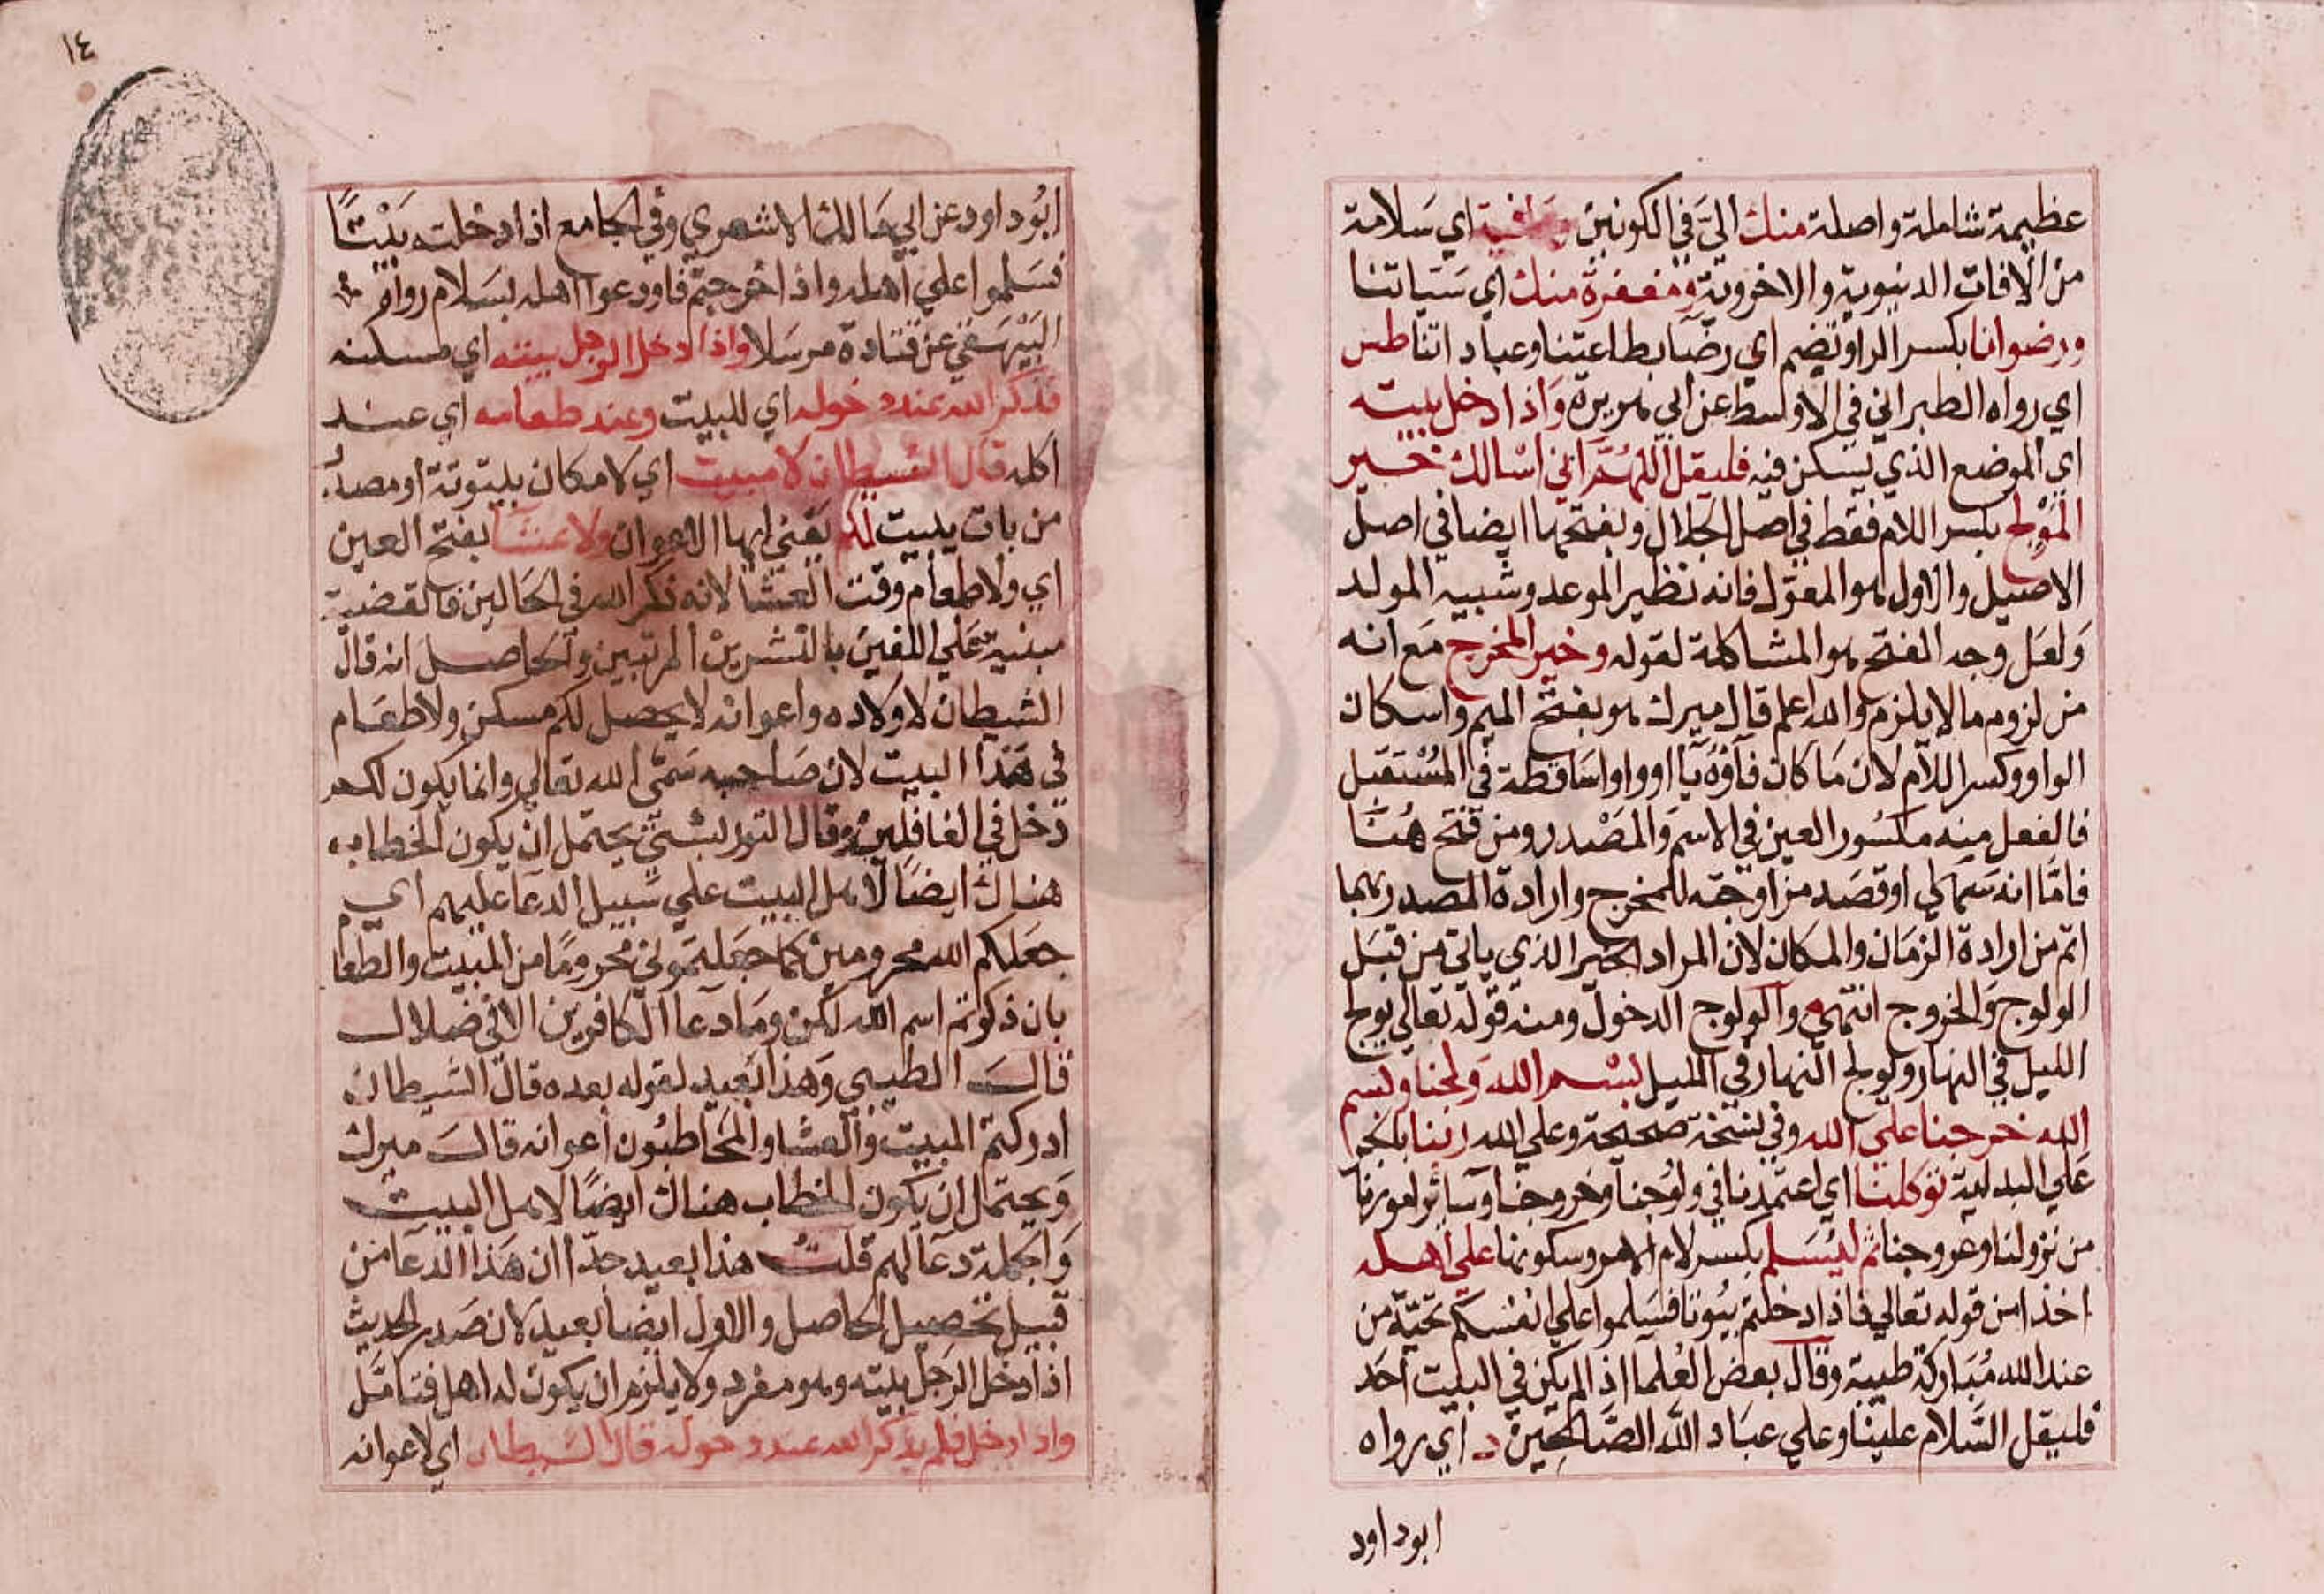 عظيمة شاملة واصلة منك اليّ في الكونين وعافية اي سَلامة
من الافات الدنيوية والاخروية ومغفرة منك اي سَيئاتنا
ورضوانا بكسر الراء وتضم اي رضّا بطاعتنا وعباداتنا طس
اي رواه الطبراني في الاوسط عن ابي هريرة وَاذا دخل بيته
اي الموضع الذي يسكن فيه فليقل اللهُمَّ اني اسْالك خير
المَوْلِج بكسر اللام فقط في اصل الجلال وبفتحها ايضا في اصل
الاصيل والاول هو المعوّل فانه نظير الموعد وشبيه المولد
وَلعَل وجه الفتح هو المشاكلة لقوله وخير المخرج مَع انه
من لزوم ما لا يلزم والله اعلم قال ميرك هو بفتح الميم واسكان
الواو وكسر اللام لان مَا كان فآؤه يآ اوواوا سَاقطة في المُسْتقبل
فالفعل منه مكسُور العين في الاسم وَالمصْدر ومن فتح هُنَا
فامَّا انه سَها او قصَد مزاوجته للمخرج وارادة المصدر بهما
اتم من ارادة الزمَان والمكان لان المراد الخير الذي ياتي من قبَل
الولوج وَالخروج انتهى والولوج الدخول ومنه قوله تعالي يولج
الليل في النهار ويولج النهار في الليل بسْم الله وَلجنا وبسم
الله خرجنا علي الله وفي نسخة صحيحة وعلي الله ربنا بالجر
عَلي البدلية توكلنا اي اعتمدنا في ولوُجنا وخروجنا وسآئر امورنا
من نزولنا وعروجنا ثم ليُسَلم بكسر لام الامر وسكونها علي اهله
اخذا من قوله تعالي فاذا دخلتم بيُوتا فسَلموا علي انفسكم تحيّة من
عند الله مُبَاركة طيبة وقال بعض العُلما اذا لم يكن في البيت احَد
فليقل السَّلام علينا وعلي عبَاد الله الصَّالحين د اي رواه
ابو داود
١٤
ابُو داود عن ابي مَالك الاشعري وفي الجامع اذا دخلتم بَيْتًا
فسَلموا علي اهله واذا خرجتم فاودعوا اهله بسَلام رواه
البَيْهَقي عن قتادة مرسَلا واذا دخل الرجل بيته اي مسكنه
فذكر الله عند دخوله اي للبيت وعند طعامه اي عند
اكله قال الشيطان لا مبيت اي لا مكان بيتوتة او مصدر
من بات يبيت لكم يعني ايها الاعوان ولا عشآ بفتح العين
اي ولا طعام وقت العشا لانه ذكر الله في الحَالين فالقضية
مبنية علي اللف والنشر المرتبين والحَاصل انه قال
الشيطان لاولاده واعوانه لا يحصل لكم مسكن ولا طعَام
في هَذا البيت لان صَاحبه سَمّى الله تعالى وانما يكون لكم
دخل في الغافلين وقال التوربشتي يحتمل ان يكون الخطاب
هناك ايضًا لاهل البيت علي سَبيل الدعا عليهم اي
جعَلكم الله محرومين كما جعَلتموني محرومًا من المبيت والطعا
بان ذكرتم اسم الله لكن ومَا دعا الكافرين الا في ضلال
قال الطيبي وَهذا بعيد لقوله بعده قال الشيطان
ادركتم المبيت وَالعشا والمخاطبُون اعوانه قال ميرك
وَيحتمل ان يكون الخطاب هناك ايضًا لاهل البيت
وَالجملة دعآ لهم قلت هذا بعيد جدّا ان هَذا الدعا من
قبيل تحصيل الحاصل والاول ايضا بعيد لان صَدر الحديث
اذا دخل الرجل بيته وهو مفرد ولا يلزم ان يكون له اهل فتامَّل
واذا دخل فلم يذكر الله عند دخوله قال الشيطان اي لاعوانه